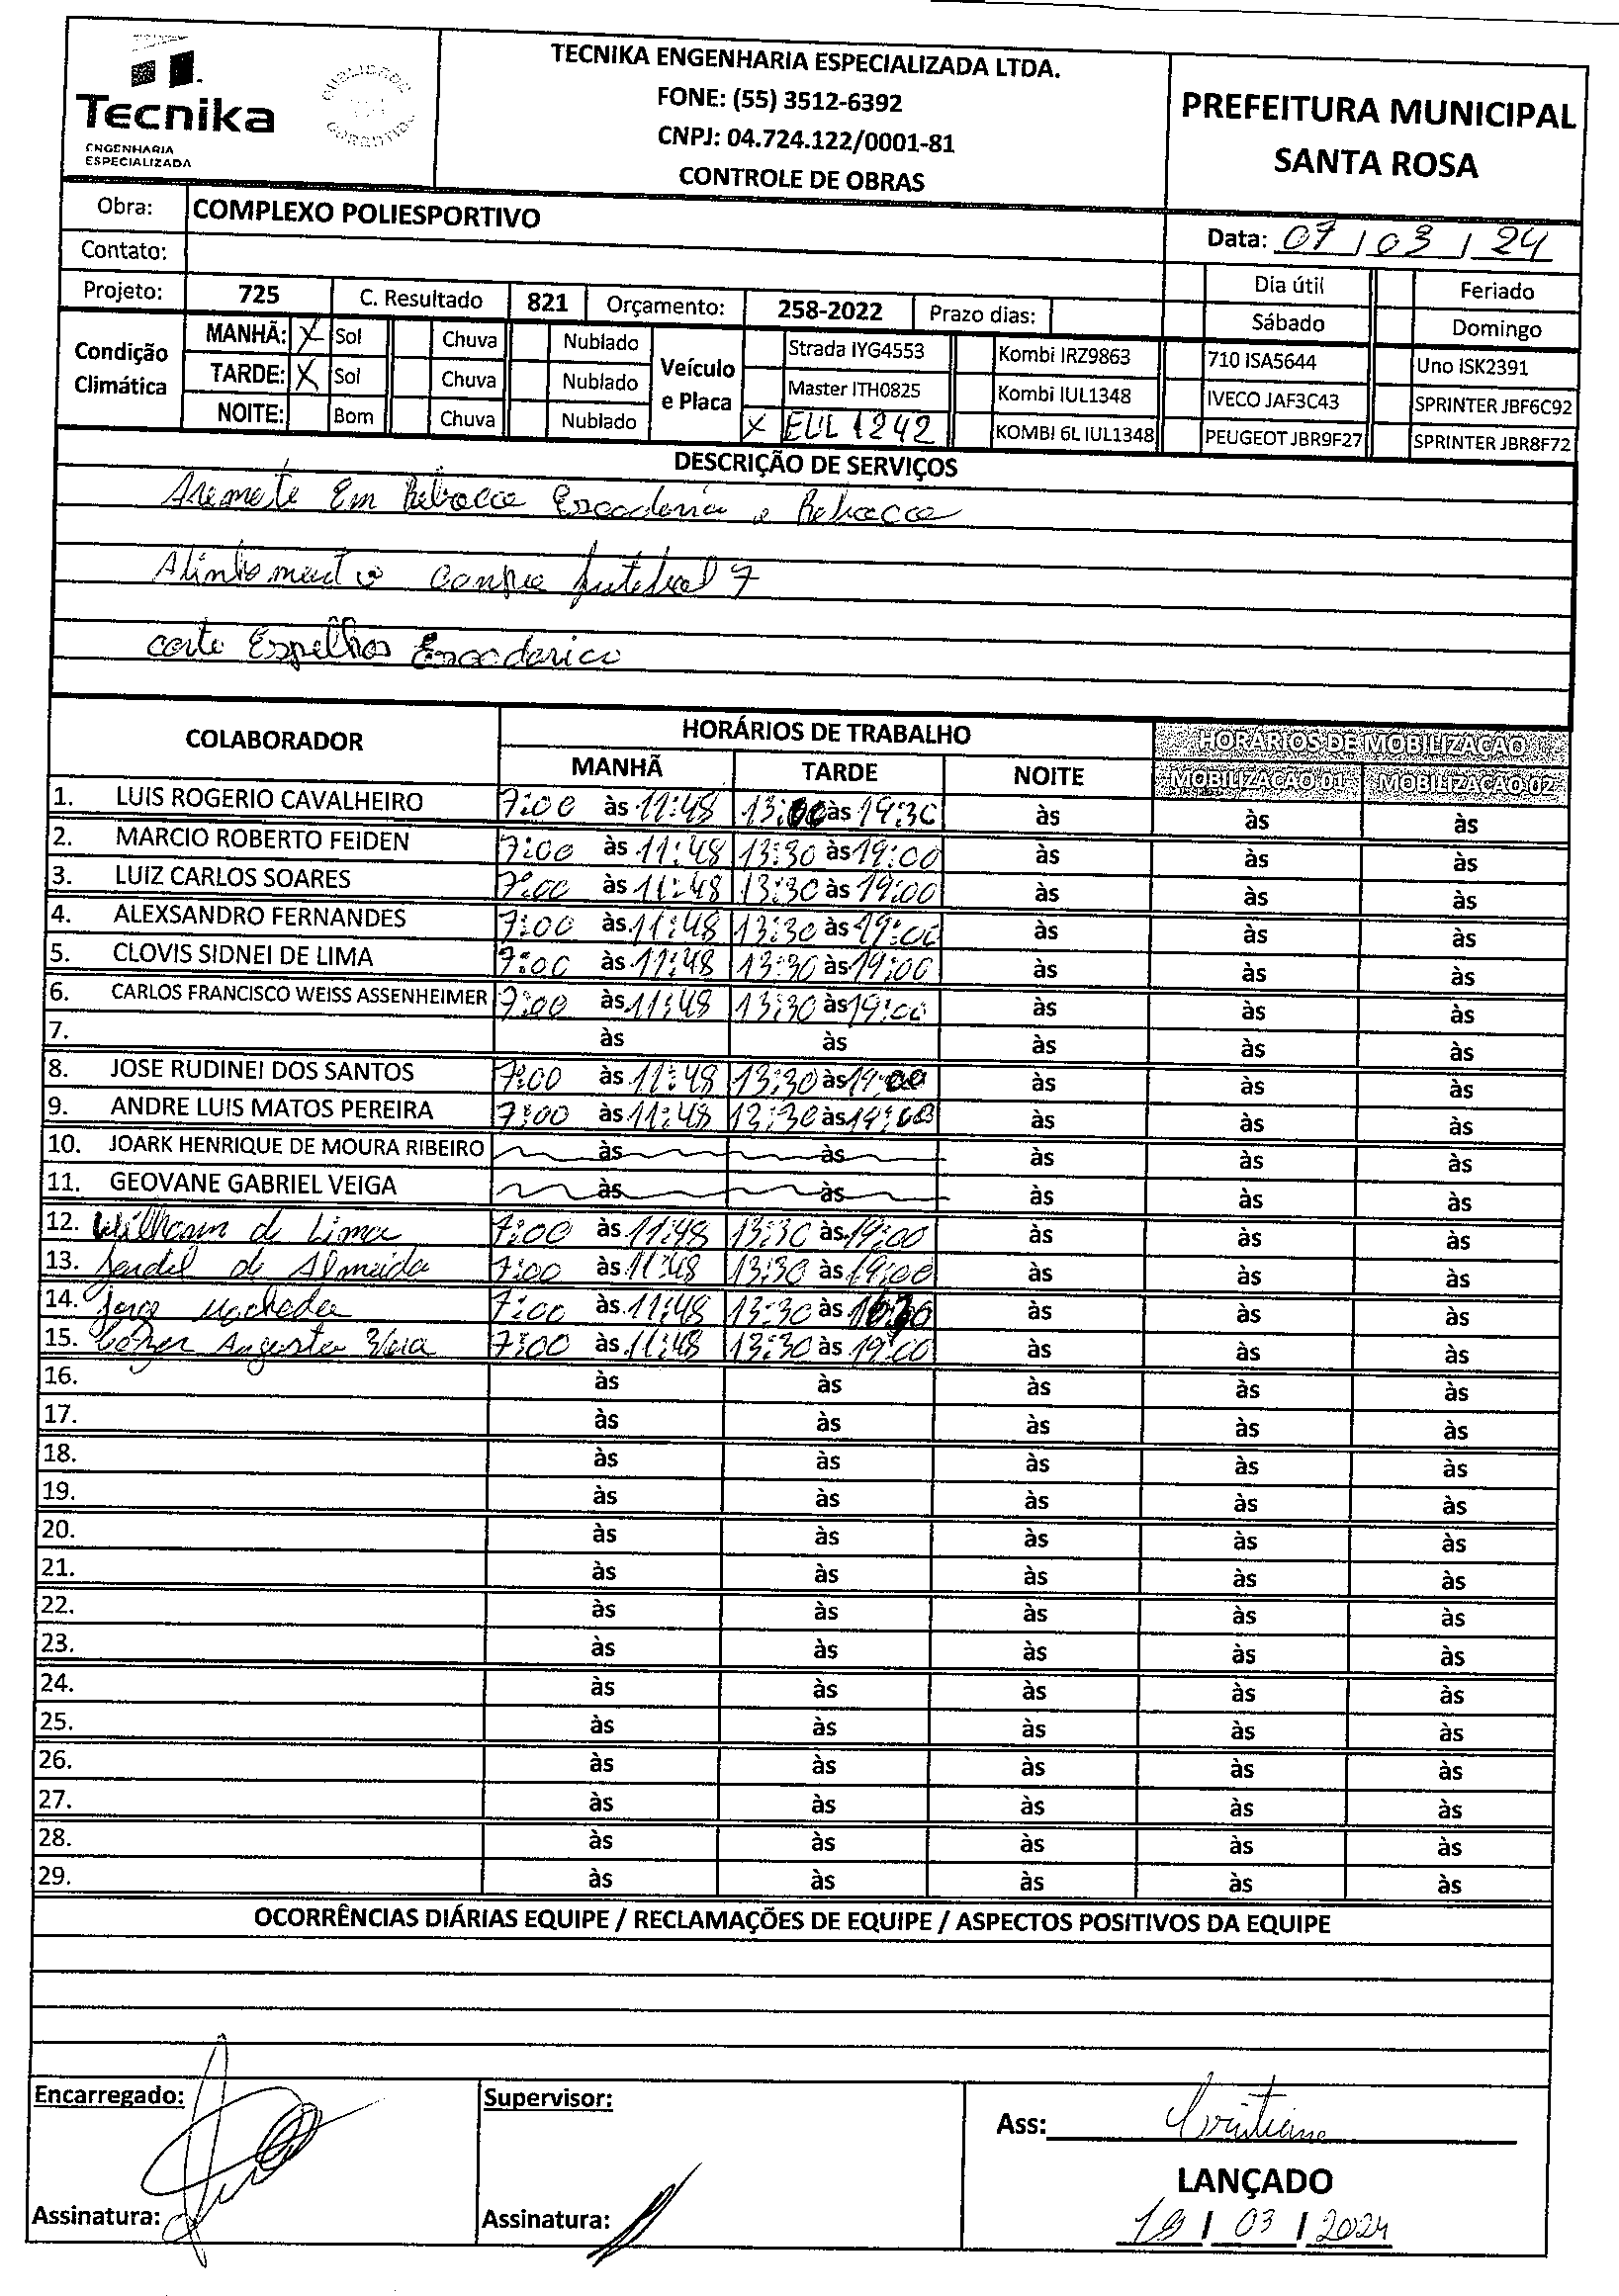 Tecnika
ENGENHARIA
ESPECIALIZADA
TECNIKA ENGENHARIA ESPECIALIZADA LTDA.
FONE: (55) 3512-6392
CNPJ: 04.724.122/0001-81
CONTROLE DE OBRAS
PREFEITURA MUNICIPAL
SANTA ROSA
Obra: COMPLEXO POLIESPORTIVO
Data: 07 / 03 / 24
Contato:
Dia útil Feriado
Projeto: 725 C. Resultado 821 Orçamento: 258-2022 Prazo dias: Sábado Domingo
Condição Climática
MANHÃ: X Sol Chuva Nublado
TARDE: X Sol Chuva Nublado
NOITE: Bom Chuva Nublado
Veículo e Placa
Strada IYG4553 Kombi IRZ9863 710 ISA5644 Uno ISK2391
Master ITH0825 Kombi IUL1348 IVECO JAF3C43 SPRINTER JBF6C92
X EUL 1242 KOMBI 6L IUL1348 PEUGEOT JBR9F27 SPRINTER JBR8F72
DESCRIÇÃO DE SERVIÇOS
Em Reboco e Reboco
7
corte Espelhos
COLABORADOR HORÁRIOS DE TRABALHO HORÁRIOS DE MOBILIZACAO
MANHÃ TARDE NOITE MOBILIZACAO 01 MOBILIZACAO 02
1. LUIS ROGERIO CAVALHEIRO 7:00 às 11:48 13:00 às 19:30 às às às
2. MARCIO ROBERTO FEIDEN 7:00 às 11:48 13:30 às 19:00 às às às
3. LUIZ CARLOS SOARES 7:00 às 11:48 13:30 às 19:00 às às às
4. ALEXSANDRO FERNANDES 7:00 às 11:48 13:30 às 19:00 às às às
5. CLOVIS SIDNEI DE LIMA 7:00 às 11:48 13:30 às 19:00 às às às
6. CARLOS FRANCISCO WEISS ASSENHEIMER 7:00 às 11:48 13:30 às 19:00 às às às
7. às às às às às
8. JOSE RUDINEI DOS SANTOS 7:00 às 11:48 13:30 às 19:00 às às às
9. ANDRE LUIS MATOS PEREIRA 7:00 às 11:48 13:30 às 19:00 às às às
10. JOARK HENRIQUE DE MOURA RIBEIRO às às às às às
11. GEOVANE GABRIEL VEIGA às às às às às
12. William de Lima 7:00 às 11:48 13:30 às 19:00 às às às
13. de Almeida 7:00 às 11:48 13:30 às 19:00 às às às
14. Jorge Machado 7:00 às 11:48 13:30 às às às às
15. Augusto 7:00 às 11:48 13:30 às 19:00 às às às
16. às às às às às
17. às às às às às
18. às às às às às
19. às às às às às
20. às às às às às
21. às às às às às
22. às às às às às
23. às às às às às
24. às às às às às
25. às às às às às
26. às às às às às
27. às às às às às
28. às às às às às
29. às às às às às
OCORRÊNCIAS DIÁRIAS EQUIPE / RECLAMAÇÕES DE EQUIPE / ASPECTOS POSITIVOS DA EQUIPE
Encarregado:
Supervisor:
Ass: Cristiane
LANÇADO
Assinatura:
Assinatura:
19 / 03 / 2024